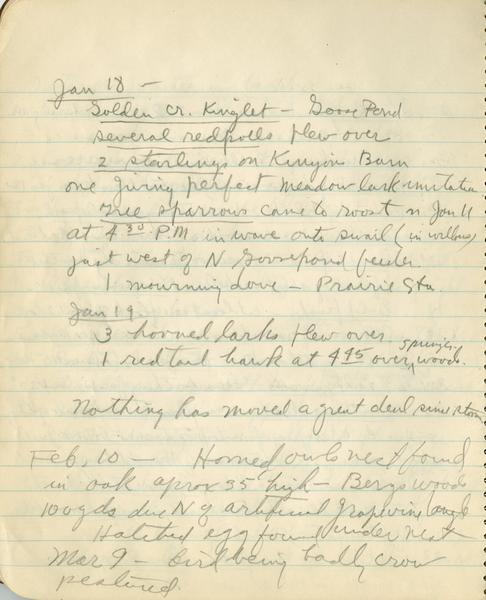 Jan 18 -
Golden Cr. Kinglet - Goose Pond
several redpolls flew over
2 starlings on Kinyon Barn
one giving perfect meadow lark imitation
Tree sparrows came to roost n Jan 11
at 4 30 P.M in wave onto swail (in willows)
just west of N Goosepond feeder
1 mourning dove - Prairie Sta.
Jan 19
3 horned larks flew over
1 red tail hawk at 4 45 over woods.
Nothing has moved a great deal since storm
Feb, 10 - Horned owls nest found
in oak aprox 35' high - Bergs woods
100 yds due N of artificial Grapevine
Hatched egg found under nest
Mar 9 - bird being badly crow
pestured.